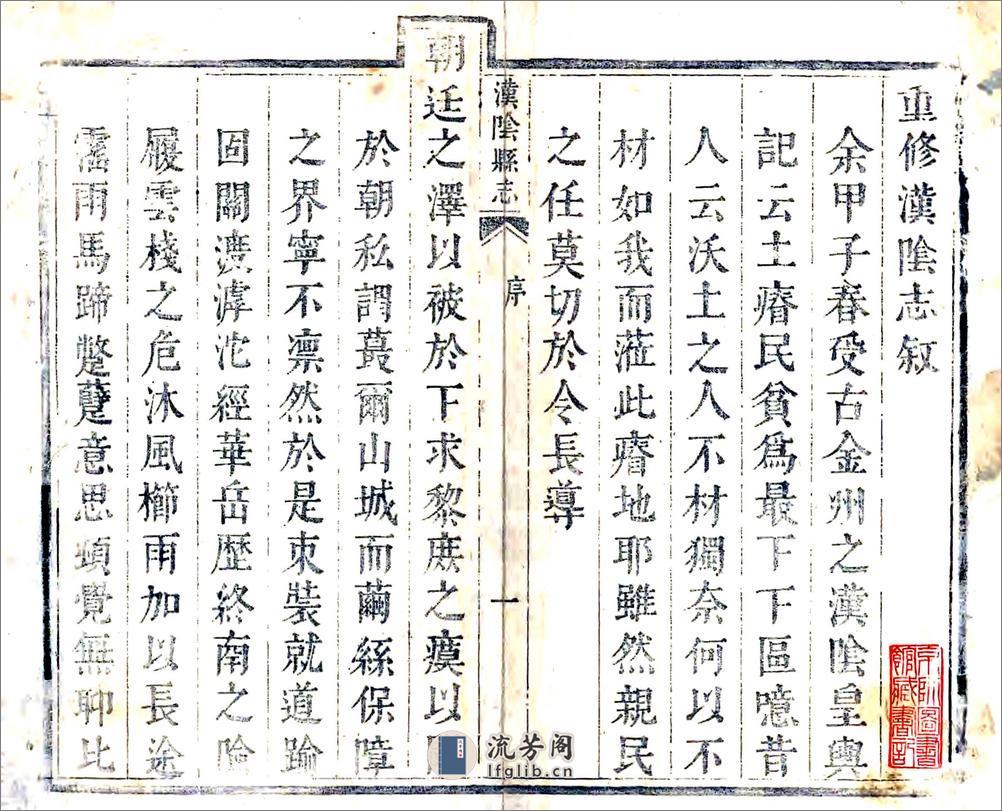 重修漢陰志叙
余甲子春受古金州之漢陰皇輿
記云土瘠民貧爲最下下區噫昔
人云沃土之人不材獨奈何以不
材如我而蒞此瘠地耶雖然親民
之任莫切於令長導
漢陰縣志 序 一
朝廷之澤以被於下求黎庶之瘼以
於朝私謂蕞爾山城而繭絲保障
之界寧不凛然於是束裝就道踰
固關渡滹沱經華岳歷終南之險
履雲棧之危沐風櫛雨加以長途
霪雨馬蹄蹩躠意思頓覺無聊比
流芳阁
lfglib.cn